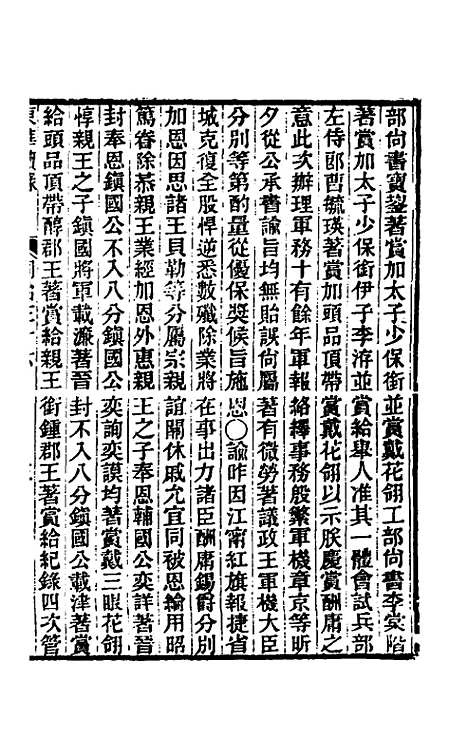 部尚書寶鋆著賞加太子少保銜並賞戴花翎工部尚書李棠階
著賞加太子少保銜伊子李㳺並賞給舉人准其一體會試兵部
左侍郎曹毓瑛著賞加頭品頂帶賞戴花翎以示朕慶賞酬庸之
意此次辦理軍務十有餘年軍報絡繹事務殷繁軍機章京等昕
夕從公承書諭旨均無貽誤尙屬著有微勞著議政王軍機大臣
分別等第酌量從優保獎候旨施恩○諭昨因江甯紅旗報捷省
城克復全股悍逆悉數殲除業將在事出力諸臣酬庸錫爵分別
加恩因思諸王貝勒等分屬宗親誼關休戚允宜同被恩綸用昭
篤眷除恭親王業經加恩外惠親王之子奉恩輔國公奕詳著晉
封奉恩鎭國公不入八分鎭國公奕詢奕謨均著賞戴三眼花翎
惇親王之子鎭國將軍載濂著晉封不入八分鎭國公載津著賞
給頭品頂帶醇郡王著賞給親王銜鍾郡王著賞給紀錄四次管
東華續錄